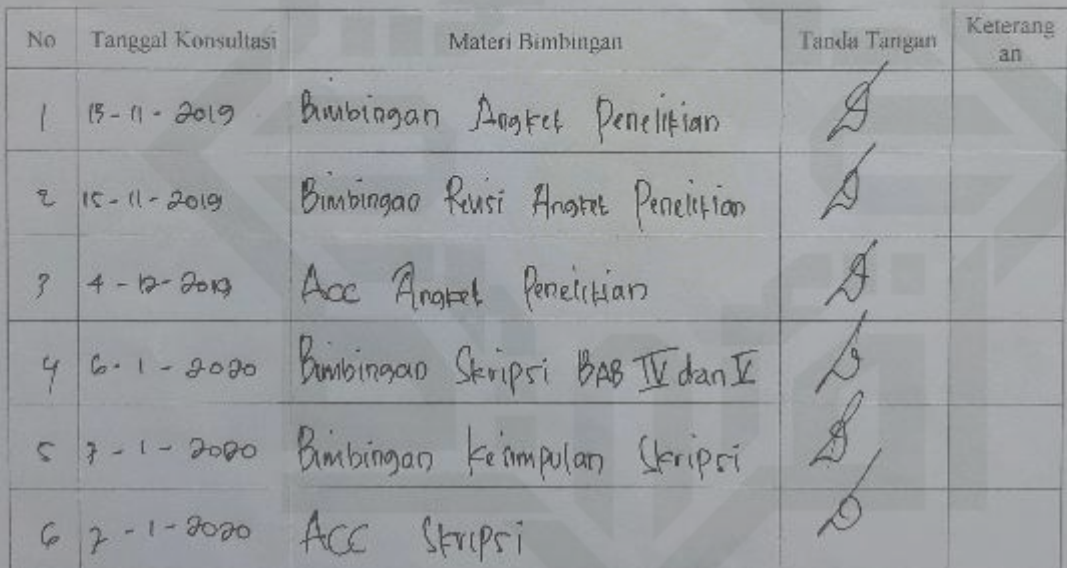 No Tanggal Konsultasi Materi Bimbingan Tanda Tangan Keterang
an
1 13-11-2019 Bimbingan Angket Penelitian
2 15-11-2019 Bimbingan Revisi Angket Penelitian
3 4-12-2019 Acc Angket Penelitian
4 6-1-2020 Bimbingan Skripsi BAB IV dan V
5 7-1-2020 Bimbingan Kesimpulan Skripsi
6 7-1-2020 ACC Skripsi